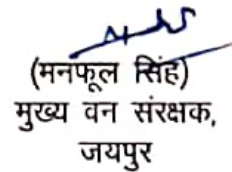 (मनफूल सिंह)
मुख्य वन संरक्षक,
जयपुर